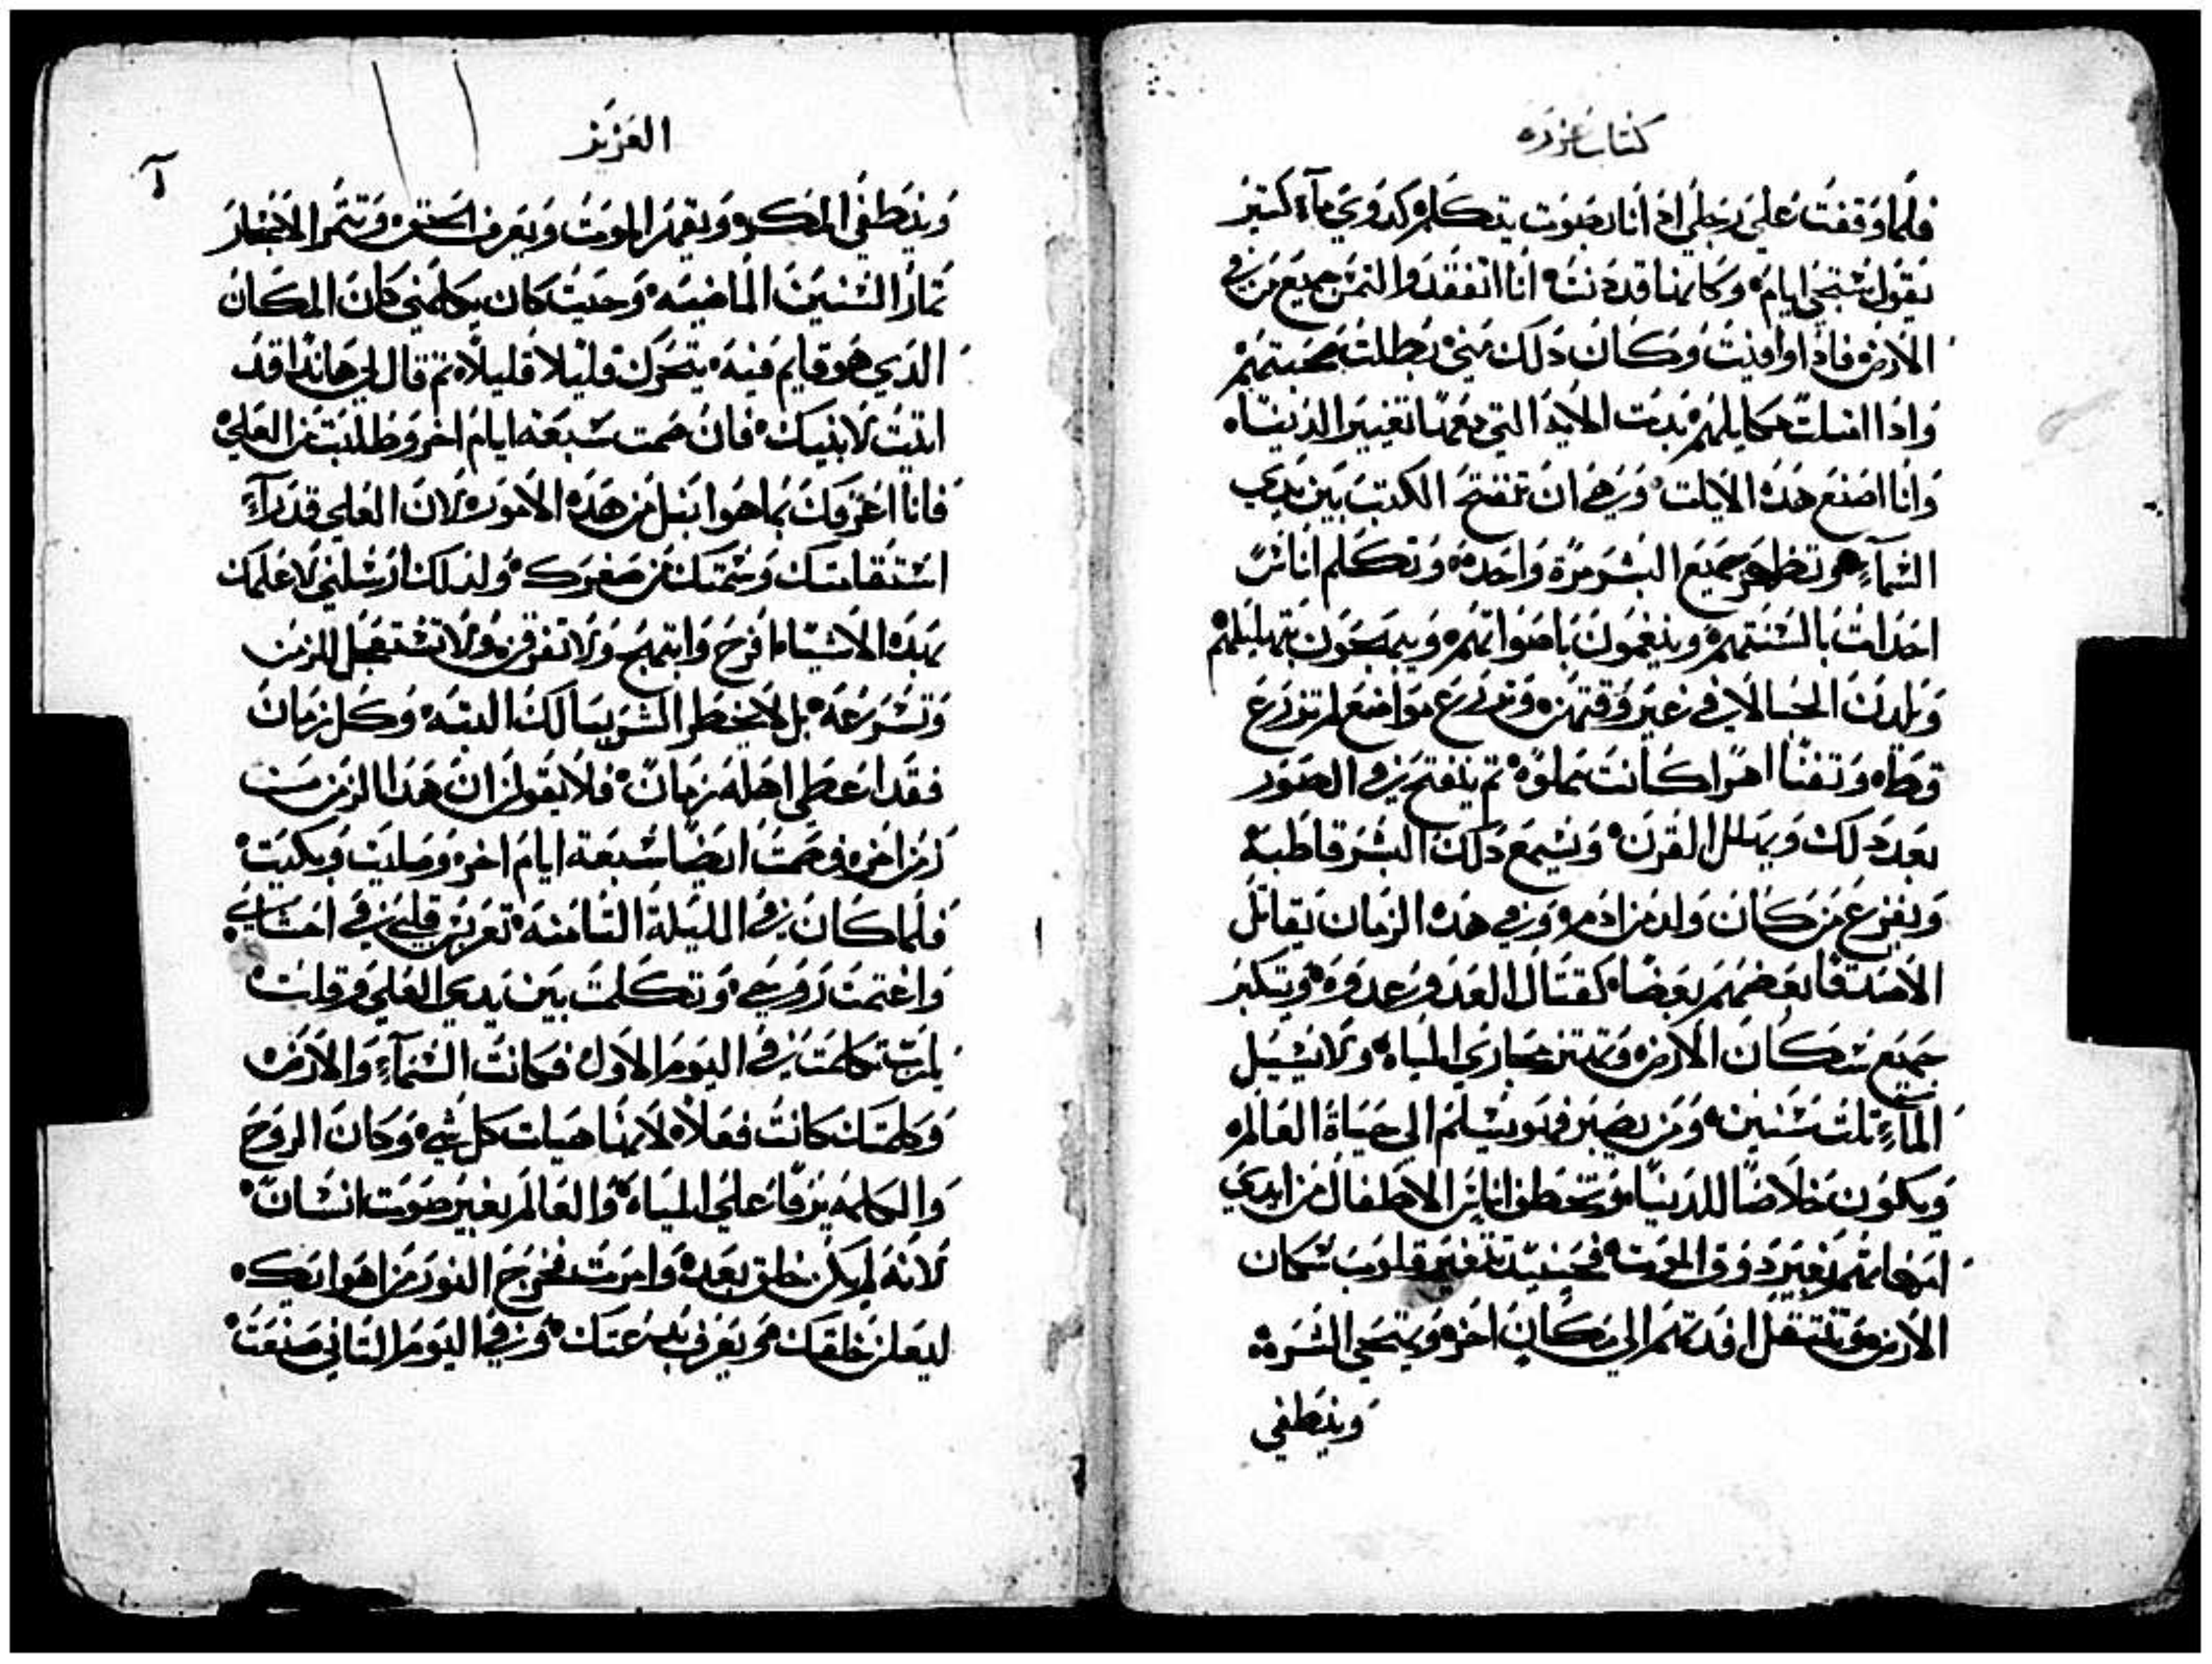 كتاب عزره
فلما وقفت على رجلي اذ انا بصوت يتكلم كدوي مآء كتير
يقول ستجي ايام وكانها قد دنت انا اتفقد والتمس جميع من في
الارض فاذا وافيت وكان دلك مني بطلت محبتهم
واذا امتلت مكايلهم بدت الابد التي معها تغيير الدنيا
وانا اصنع هده الايات وهي ان تنفتح الكتب بين يدي
السمآء وتظهر جميع البشر مرة واحده وتتكلم اناس
احدات بالسنتهم وينغمون باصواتهم ويبهجون بتهليلهم
ويلدن الحبالا في غير وقتهن وتزرع مواضع لم تزرع
قط وتفنا اهرا كانت مملوه تم ينفتح في الصور
بعد دلك ويهلل القرن وتسمع دلك البشر قاطبة
ويفزع من كان ولد من ادم وفي هده الزمان يقاتل
الاصدقا بعضهم بعضا كقتال العدو عدوه ويتكبر
جميع سكان الارض مجاري المياه ولا يسيل
المآء تلت سنين ومن يصبر فهو يسلم الى حياة العالم
ويكون خلاصا للدنيا وتخطف اناس الاطفال من ايدي
امهاتهم بغير دوق الموت فحينيد تتغير قلوب سكان
الارض وتنتقل افدتهم الي مكان اخر ويتمحي الشره
وينطفي
العزيز
وينطفي المكر ويقهر الموت ويعرف الحق وتتمر الاشجار
تمار السنين الماضيه وحيت كان يكلمني كان المكان
الدي هو قايم فيه يتحرك قليلا قليلا تم قال لي هانذا قد
اتيت لانبيك فان صمت سبعه ايام اخر وطلبت من العلي
فانا اعرفك بما هو انبل من هذه الامور لان العلي قد رآء
استقامتك وسمتك من صغرك ولدلك ارسلني لاعلمك
بهده الاشيا افرح وابتهج ولا تفرق ولا تستعجل الزمن
وتسرعه بل لا يخطر الشر ببالك البته وكل زمان
فقد اعطي اهله زمان فلا يقولن ان هدا الزمن مت
زمن اخر فصمت ايضا سبعة ايام اخر وصليت وبكيت
فلما كان في الليلة التامنه تعزيز قلبي في احشاي
واغتمت روحي وتكلمت بين يدي العلي وقلت
يارب تكلمت في اليوم الاول فكانت السمآء والارض
وكلمتك كانت فعلا لانها حيات كل شي وكان الروح
والكلمه يرفا علي المياه والعالم بغير صوت انسان
لانه لم يكن خلق بعد وامرت فخرج النور من اهوايك
ليعلن خلقك ويعرف بدعتك وفي اليوم التاني صنعت